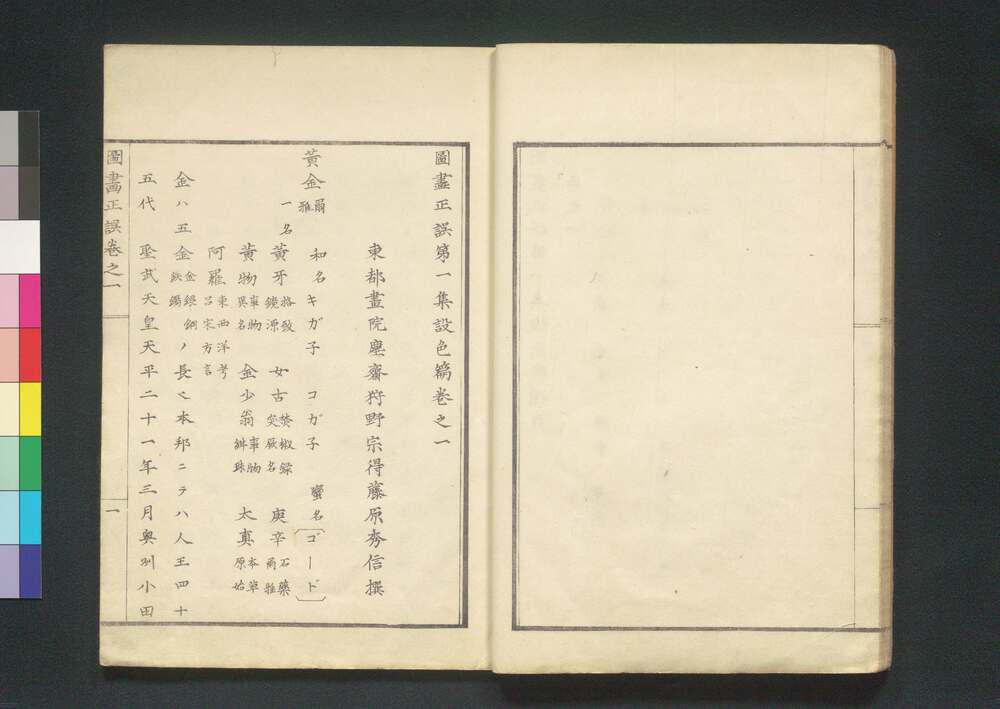 圖畫正誤第一集設色篇卷之一
東都畫院塵齋狩野宗得藤原秀信撰
黃金爾雅 和名キガ子 コガ子 蠻名〔ゴード〕
一名 黃牙格致鏡源 女古焚椒録突厥名 庚辛石藥爾雅
黃物事物異名 金少翁事物紺珠 太真本草原始
阿羅東西洋考呂宋方言
金ハ五金金銀銅鉄鐲ノ長也本邦ニテハ人王四十
五代 聖武天皇天平二十一年三月奥州小田
圖畫正誤卷之一
一